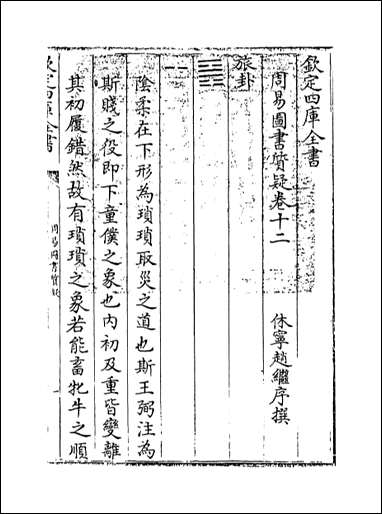 欽定四庫全書
周易圖書質疑卷十二
休寧趙繼序撰
旅卦
陰柔在下形為瑣瑣取災之道也斯王弼注為
斯賤之役即下童僕之象也内初及重皆變離
其初履錯然故有瑣瑣之象若能畜牝牛之順
欽定四庫全書
周易圖書質疑